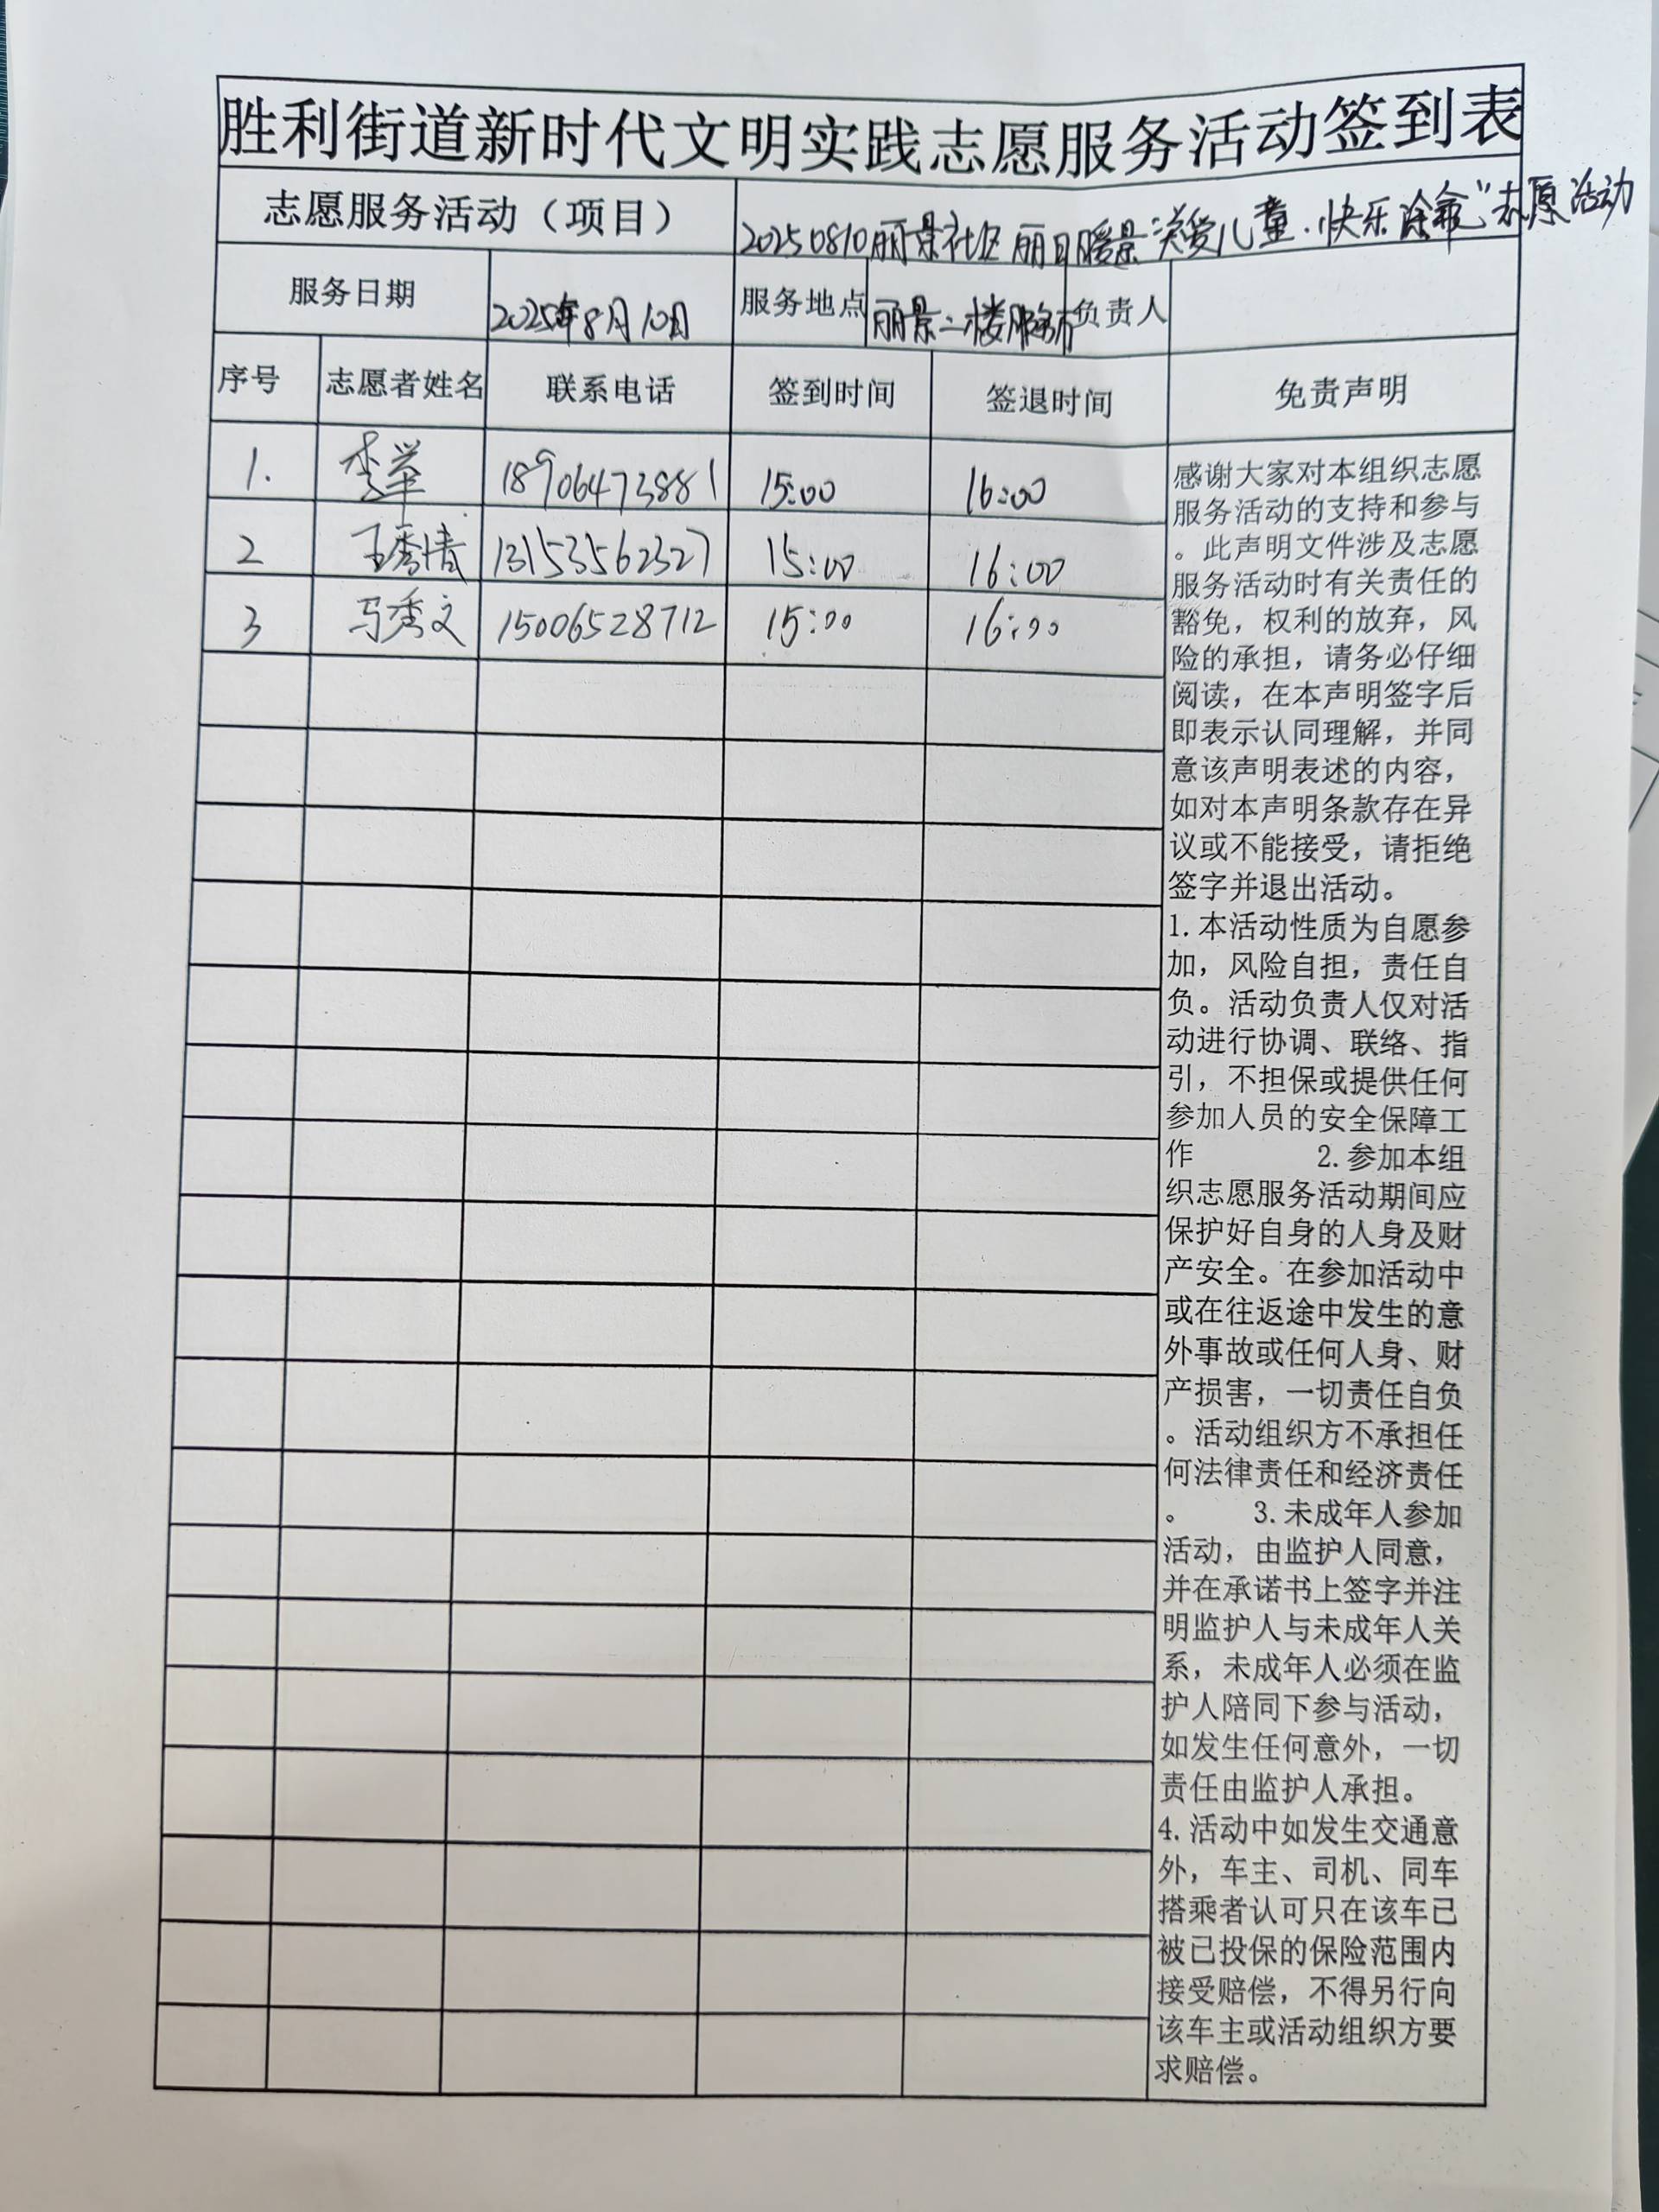 胜利街道新时代文明实践志愿服务活动签到表
志愿服务活动（项目） 20250810丽景社区丽日暖景“关爱儿童·快乐涂鸦”志愿活动
服务日期 2025年8月10日 服务地点 丽景二楼服务 负责人
序号 志愿者姓名 联系电话 签到时间 签退时间 免责声明
1. 李举 18906473881 15:00 16:00
2 王秀倩 13153562327 15:00 16:00
3 马秀文 15006528712 15:00 16:00
感谢大家对本组织志愿
服务活动的支持和参与
。此声明文件涉及志愿
服务活动时有关责任的
豁免，权利的放弃，风
险的承担，请务必仔细
阅读，在本声明签字后
即表示认同理解，并同
意该声明表述的内容，
如对本声明条款存在异
议或不能接受，请拒绝
签字并退出活动。
1.本活动性质为自愿参
加，风险自担，责任自
负。活动负责人仅对活
动进行协调、联络、指
引，不担保或提供任何
参加人员的安全保障工
作 2.参加本组
织志愿服务活动期间应
保护好自身的人身及财
产安全。在参加活动中
或在往返途中发生的意
外事故或任何人身、财
产损害，一切责任自负
。活动组织方不承担任
何法律责任和经济责任
。 3.未成年人参加
活动，由监护人同意，
并在承诺书上签字并注
明监护人与未成年人关
系，未成年人必须在监
护人陪同下参与活动，
如发生任何意外，一切
责任由监护人承担。
4.活动中如发生交通意
外，车主、司机、同车
搭乘者认可只在该车已
被已投保的保险范围内
接受赔偿，不得另行向
该车主或活动组织方要
求赔偿。